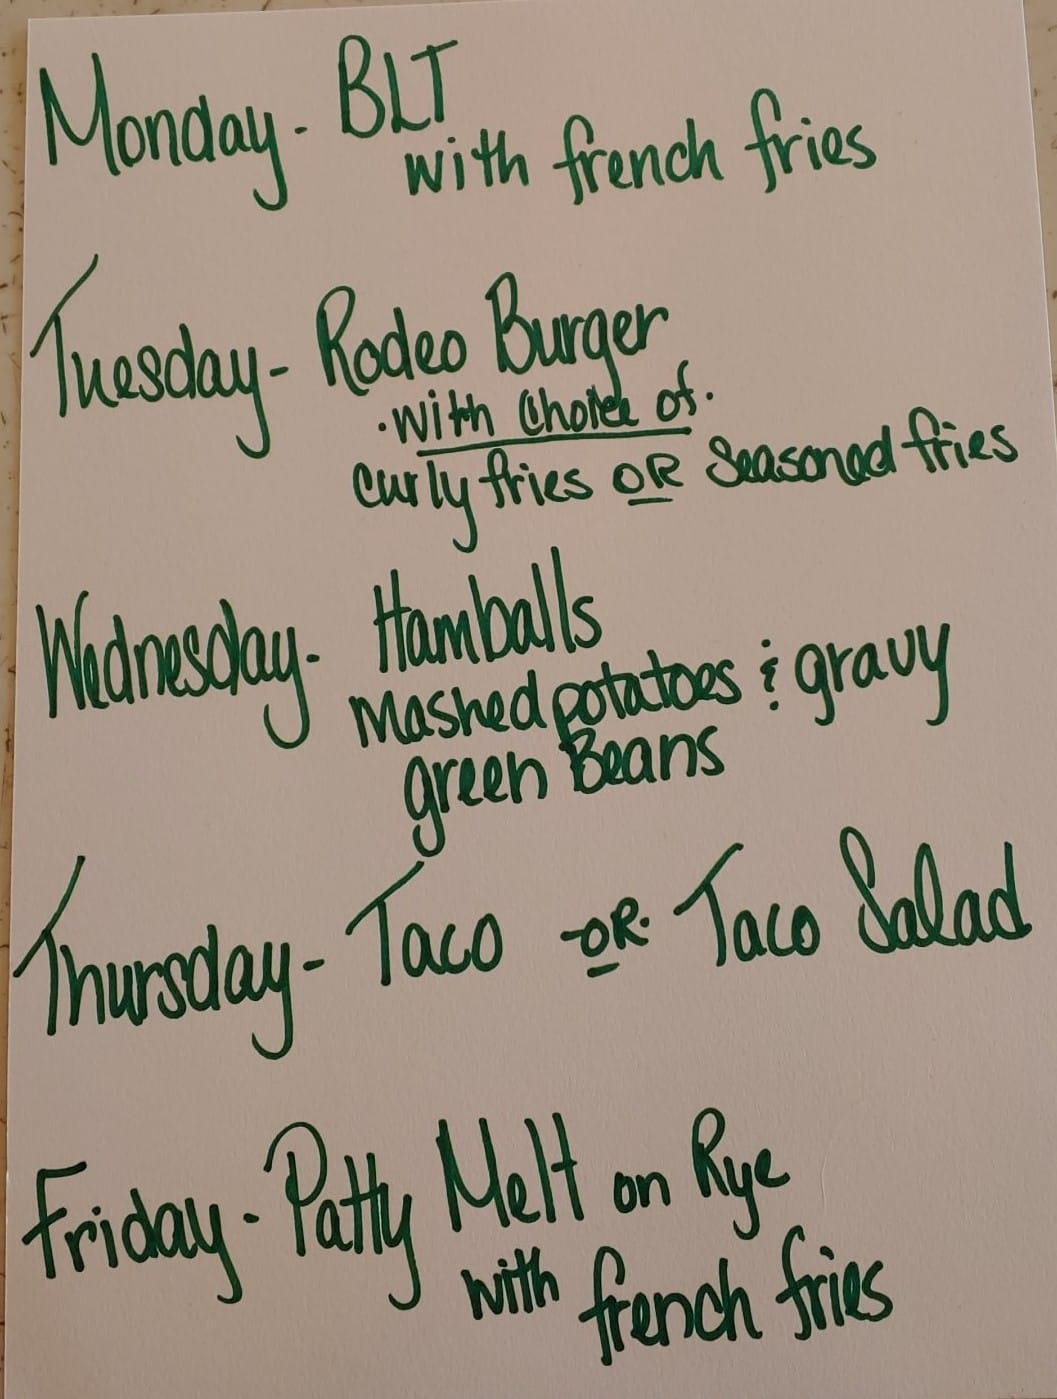 Monday - BLT
with french fries
Tuesday - Rodeo Burger
· with Choice of ·
curly fries OR Seasoned fries
Wednesday - Hamballs
Mashed potatoes & gravy
green Beans
Thursday - Taco -OR- Taco Salad
Friday - Patty Melt on Rye
with french fries